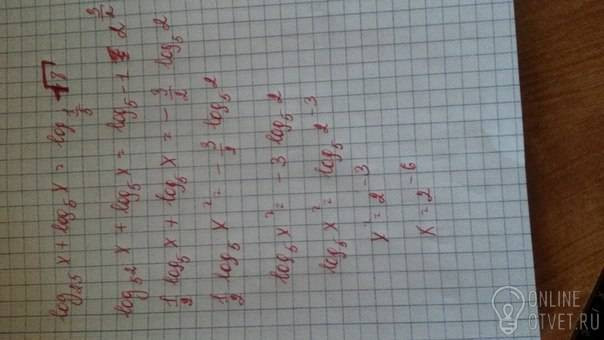 log₂₅ x + log₅ x = log_{1/5} √8
log_{5²} x + log₅ x = log_{5^{-1}} 2^{3/2}
1/2 log₅ x + log₅ x = - 3/2 log₅ 2
1/2 log₅ x² = - 3/2 log₅ 2
log₅ x² = - 3 log₅ 2
log₅ x² = log₅ 2^{-3}
x² = 2^{-3}
x = 2^{-6}
ONLINE
OTVET.RU